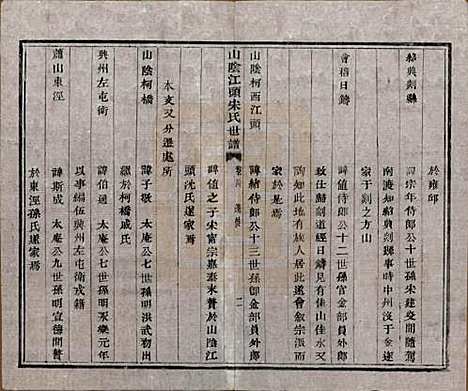 於雍邱
紹興剡縣
諱宗年侍郎公十世孫宋建炎間隨駕
南渡知紹興剡縣事時中州沒于金遂
家于剡之方山
會稽日鑄
諱值侍郎公十二世孫官金部員外郎
致仕歸剡道經日鑄見有佳山佳水又
詢知此地有族人居此遂會叙宗派而
家於是焉
山陰柯西江頭
諱緒侍郎公十三世孫金部員外郎
山陰江頭宋氏世譜
卷首 遷徙
二
諱值之子宋甯宗嘉泰末贅於山陰江
頭沈氏遂家焉
本支又分遷處所
山陰柯橋
諱子敬 太庵公七世孫明洪武初出
繼於柯橋戚氏
興州左屯衛
諱伯通 太庵公七世孫明永樂元年
以事編伍興州左屯衛戎籍
蕭山東涇
諱斯成 太庵公九世孫明宣德間贅
於東涇孫氏遂家焉